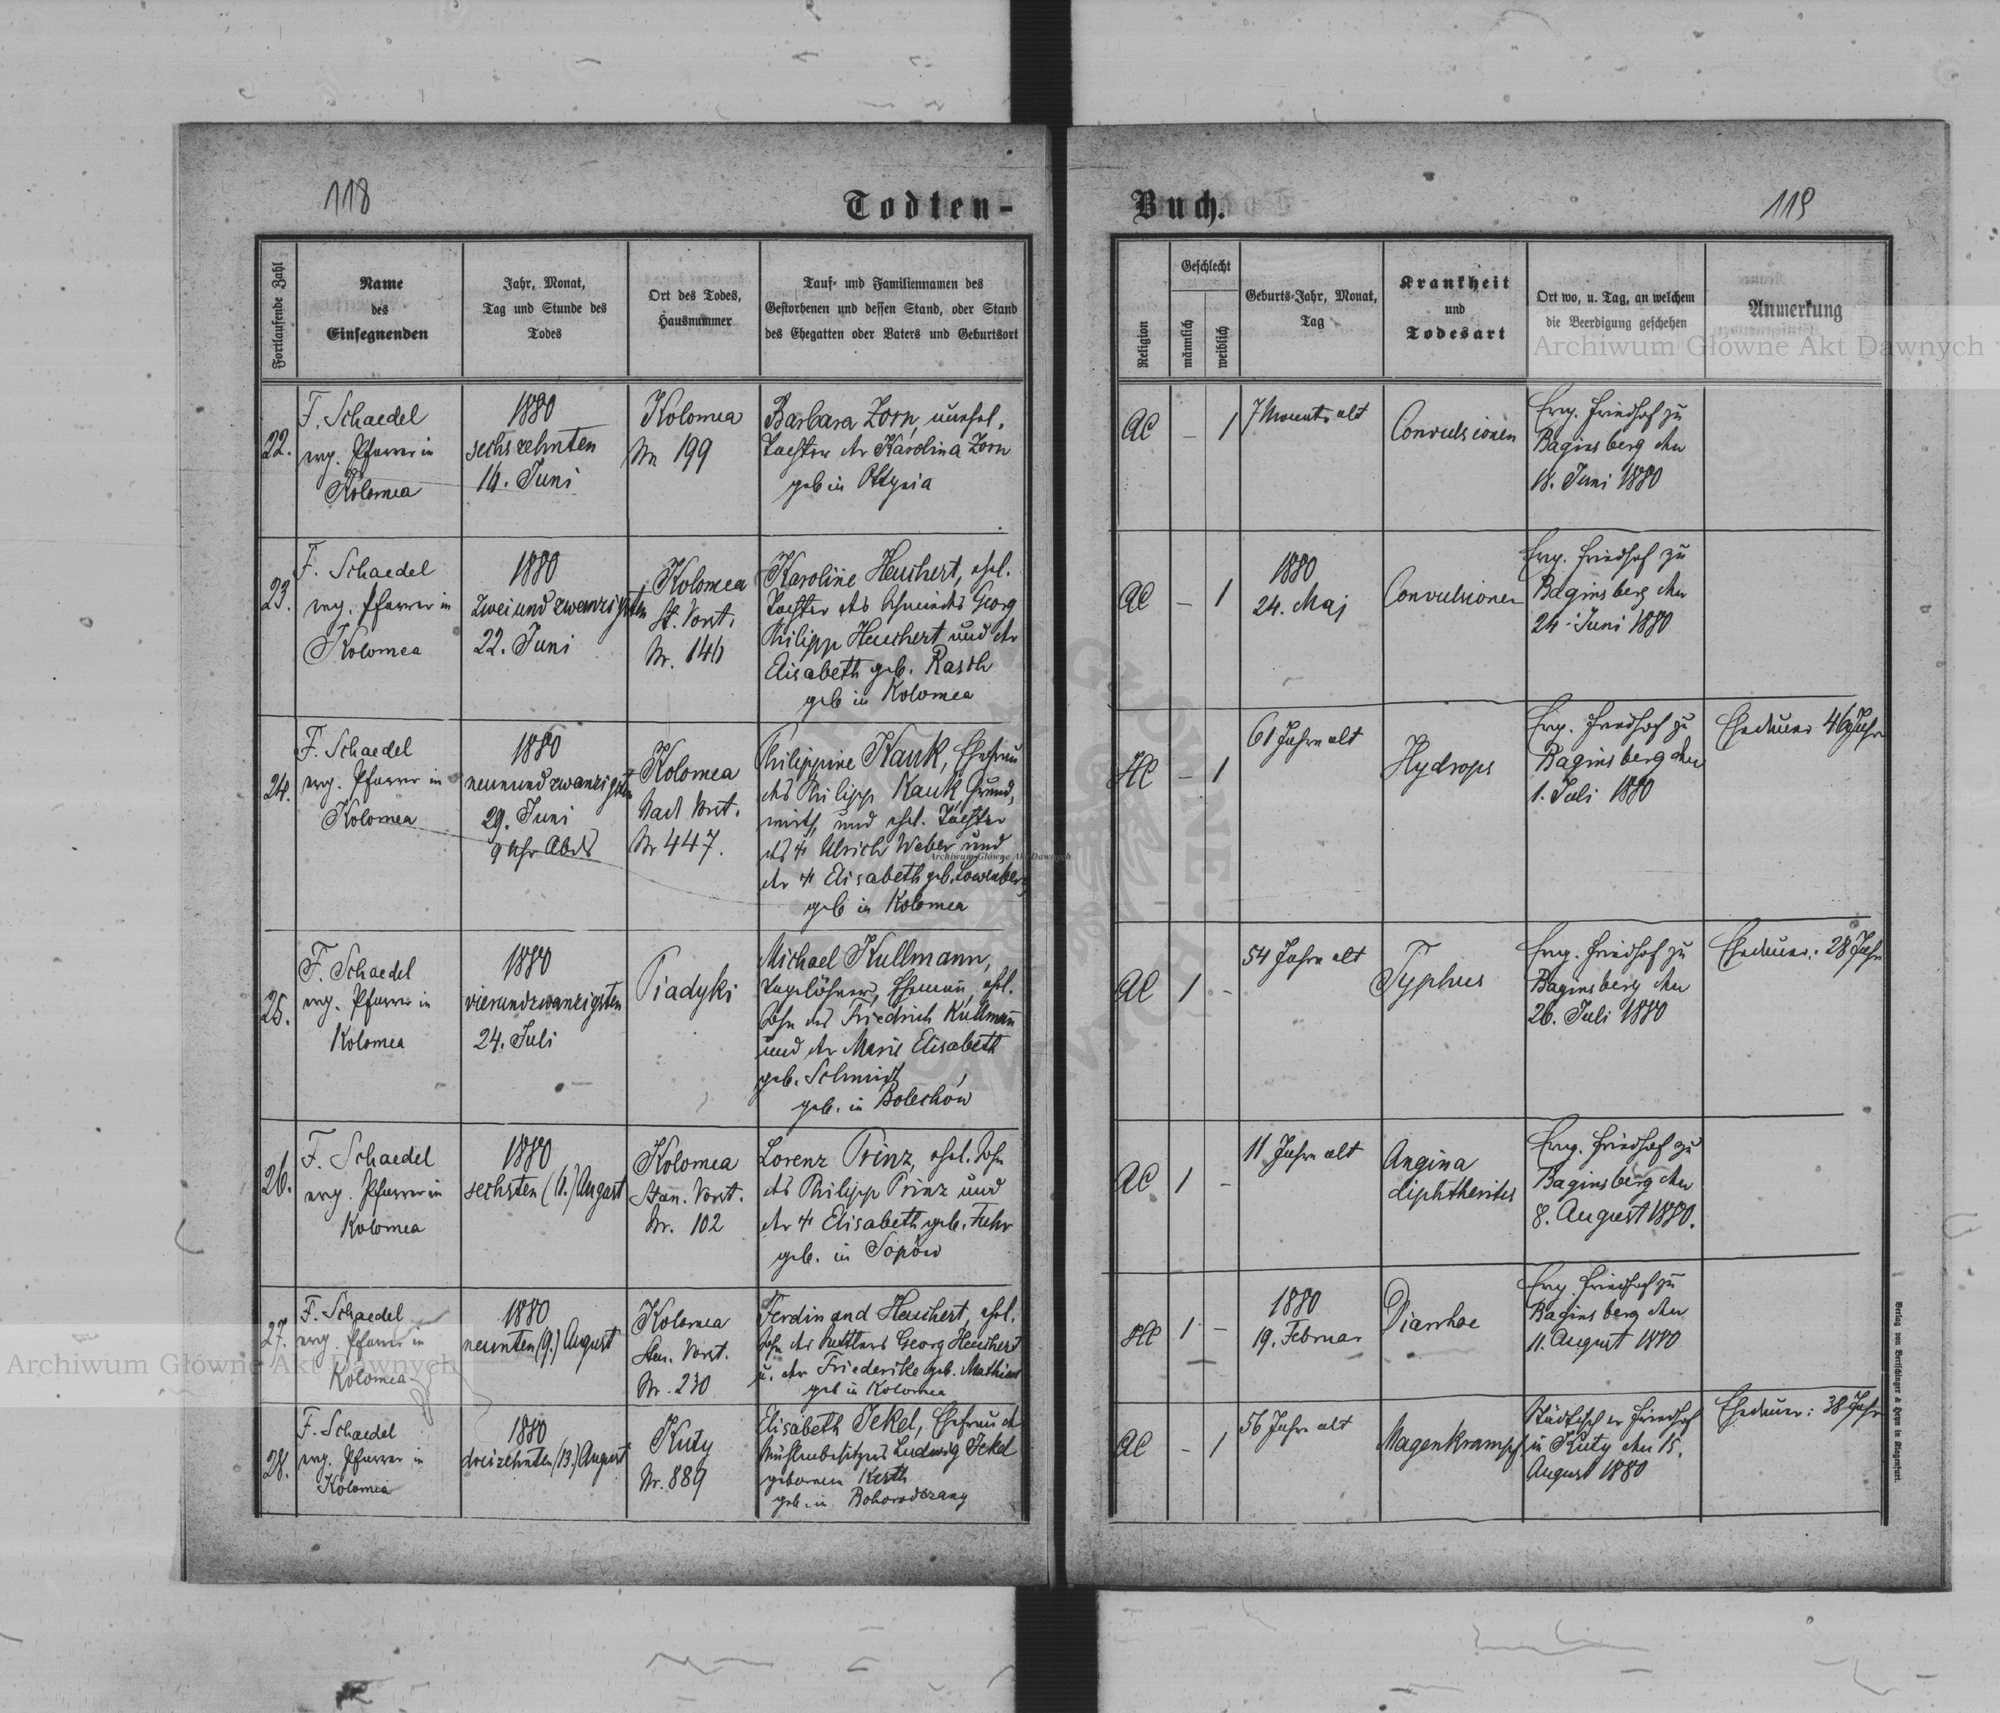 118
Todten-
Fortlaufende Zahl
Name
des
Einsegnenden
Jahr, Monat,
Tag und Stunde des
Todes
Ort des Todes,
Hausnummer
Tauf- und Familiennamen des
Gestorbenen und dessen Stand, oder Stand
des Ehegatten oder Vaters und Geburtsort
22.
F. Schaedel
evg. Pfarrer in
Kolomea
1880
sechszehnten
16. Juni
Kolomea
Nr 199
Barbara Zorn, unehel.
Tochter der Karolina Zorn
geb in Ottynia
23.
F. Schaedel
evg. Pfarrer in
Kolomea
1880
zweiundzwanzigsten
22. Juni
Kolomea
St. Vorst.
Nr. 146
Karoline Heuchert, ehel.
Tochter des Schmieds Georg
Philipp Heuchert und der
Elisabeth geb. Rasch
geb in Kolomea
24.
F. Schaedel
evg. Pfarrer in
Kolomea
1880
neunundzwanzigsten
29. Juni
9 Uhr Abds
Kolomea
Nad. Vorst.
Nr 447.
Philippine Kauk, Ehefrau
des Philipp Kauk, Grund,
wirth, und ehel. Tochter
des ♰ Ulrich Weber und
der ♰ Elisabeth geb. Lowenberg
geb in Kolomea
25.
F. Schaedel
evg. Pfarrer in
Kolomea
1880
vierundzwanzigsten
24. Juli
Piadyki
Michael Kullmann,
Tagelöhner, Ehemann, ehel.
Sohn des Friedrich Kullmann
und der Marie Elisabeth
geb. Schmidt
geb. in Bolechów
26.
F. Schaedel
evg. Pfarrer in
Kolomea
1880
sechsten (6.) August
Kolomea
Stan. Vorst.
Nr. 102
Lorenz Prinz, ehel. Sohn
des Philipp Prinz und
der ♰ Elisabeth geb. Fuhr
geb. in Sopów
27.
F. Schaedel
evg. Pfarrer in
Kolomea
1880
neunten (9.) August
Kolomea
Stan. Vorst.
Nr. 230
Ferdinand Heuchert, ehel.
Sohn des Sattlers Georg Heuchert
u. der Friederike geb. Mathias
geb in Kolomea
28.
F. Schaedel
evg. Pfarrer in
Kolomea
1880
dreizehnten (13.) August
Kuty
Nr. 889
Elisabeth Jekel, Ehefrau d
Mühlenbesitzers Ludwig Jekel
geborenen Kerth
geb. in Bohorodczany
Buch.
119
Religion
Geschlecht
männlich
weiblich
Geburts-Jahr, Monat,
Tag
Krankheit
und
Todesart
Ort wo, u. Tag, an welchem
die Beerdigung geschehen
Anmerkung
AC
–
1
7 Monate alt
Convulsionen
Evg. Friedhof zu
Baginsberg den
18. Juni 1880
AC
–
1
1880
24. Maj
Convulsionen
Evg. Friedhof zu
Baginsberg den
24. Juni 1880
HC
–
1
61 Jahre alt
Hydrops
Evg. Friedhof zu
Baginsberg den
1. Juli 1880
Ehedauer 46 Jahr
AC
1
–
54 Jahre alt
Typhus
Evg. Friedhof zu
Baginsberg den
26. Juli 1880
Ehedauer: 28 Jahr
AC
1
–
11 Jahre alt
Angina
diphtherites
Evg. Friedhof zu
Baginsberg den
8. August 1880.
HC
1
–
1880
19. Februar
Diarrhoe
Evg. Friedhof zu
Baginsberg den
11. August 1880
AC
–
1
56 Jahre alt
Magenkrampf
Städtischer Friedhof
in Kuty den 15.
August 1880
Ehedauer: 38 Jahr
Verlag von Bertschinger & Heyn in Klagenfurt.
Archiwum Główne Akt Dawnych
Archiwum Główne Akt Dawnych
Archiwum Główne Akt Dawnych